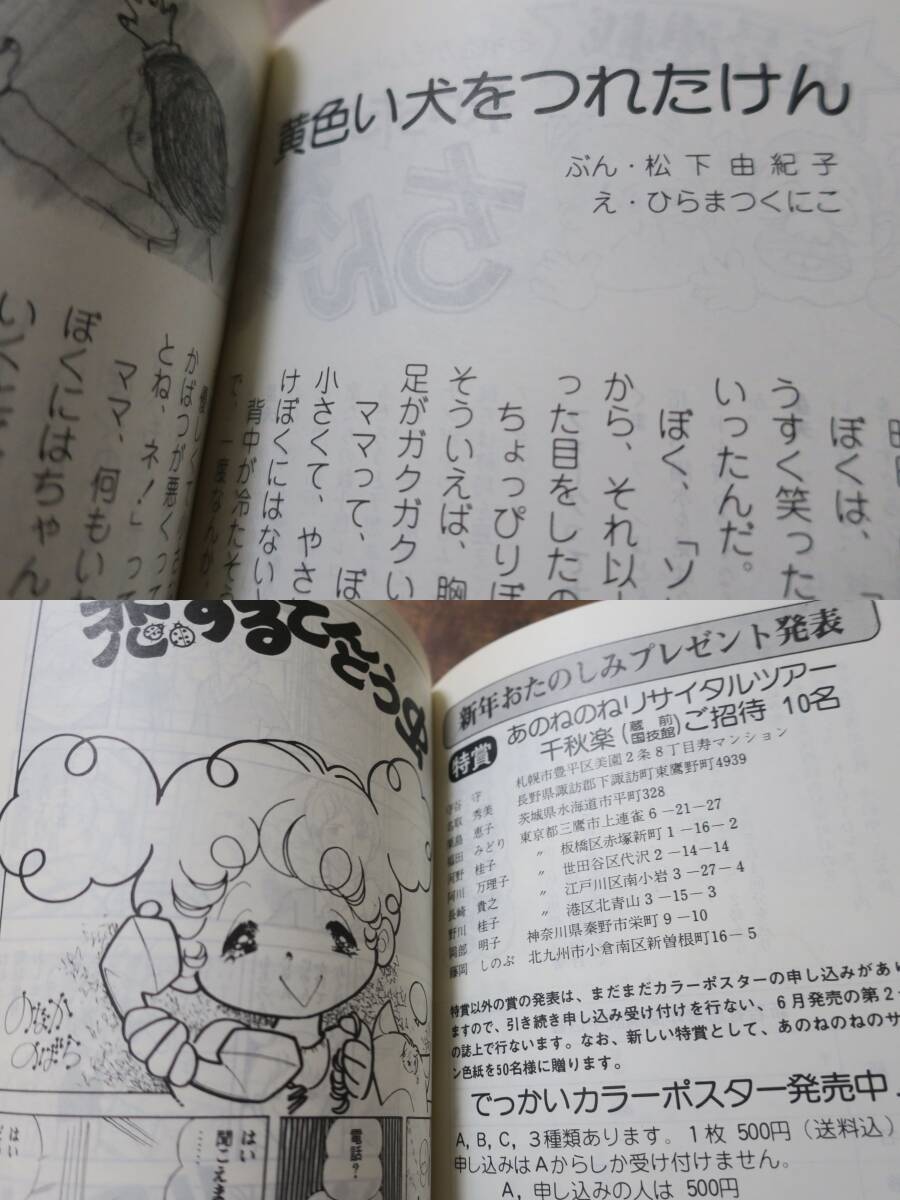 黄色い犬をつれたけん
ぶん・松下由紀子
え・ひらまつくにこ
ぼくは、
うすく笑った
いったんだ。
ぼく、「ソ
から、それ以
った目をしたの
ちょっぴりぼ
そういえば、胸
足がガクガクい
ママって、ぼ
小さくて、やさ
けぼくにはない
背中が冷たそう
で、一度なんか、
優しくて
かばつが悪くって
とね、ネ!」っ
ママ、何もい
ぼくにはちゃん
恋するてんとう虫
のなか
のばら
電話?
はい
聞こえま
……
はい
新年おたのしみプレゼント発表
特賞
あのねのねリサイタルツアー
千秋楽(蔵前国技館)ご招待 10名
守 札幌市豊平区美園2条8丁目寿マンション
秀美 長野県諏訪郡下諏訪町東鷹野町4939
恵子 茨城県水海道市平町328
塩田 みどり 東京都三鷹市上連雀6-21-27
河野 桂子 〃 板橋区赤塚新町1-16-2
阿川 万理子 〃 世田谷区代沢2-14-14
長崎 貴之 〃 江戸川区南小岩3-27-4
野川 桂子 〃 港区北青山3-15-3
岡部 明子 神奈川県秦野市栄町9-10
藤岡 しのぶ 北九州市小倉南区新曽根町16-5
特賞以外の賞の発表は、まだまだカラーポスターの申し込みがあり
ますので、引き続き申し込み受け付けを行ない、6月発売の第2
の誌上で行ないます。なお、新しい特賞として、あのねのねのサ
ン色紙を50名様に贈ります。
でっかいカラーポスター発売中
A, B, C, 3種類あります。1枚 500円(送料込)
申し込みはAからしか受け付けません。
A, 申し込みの人は 500円